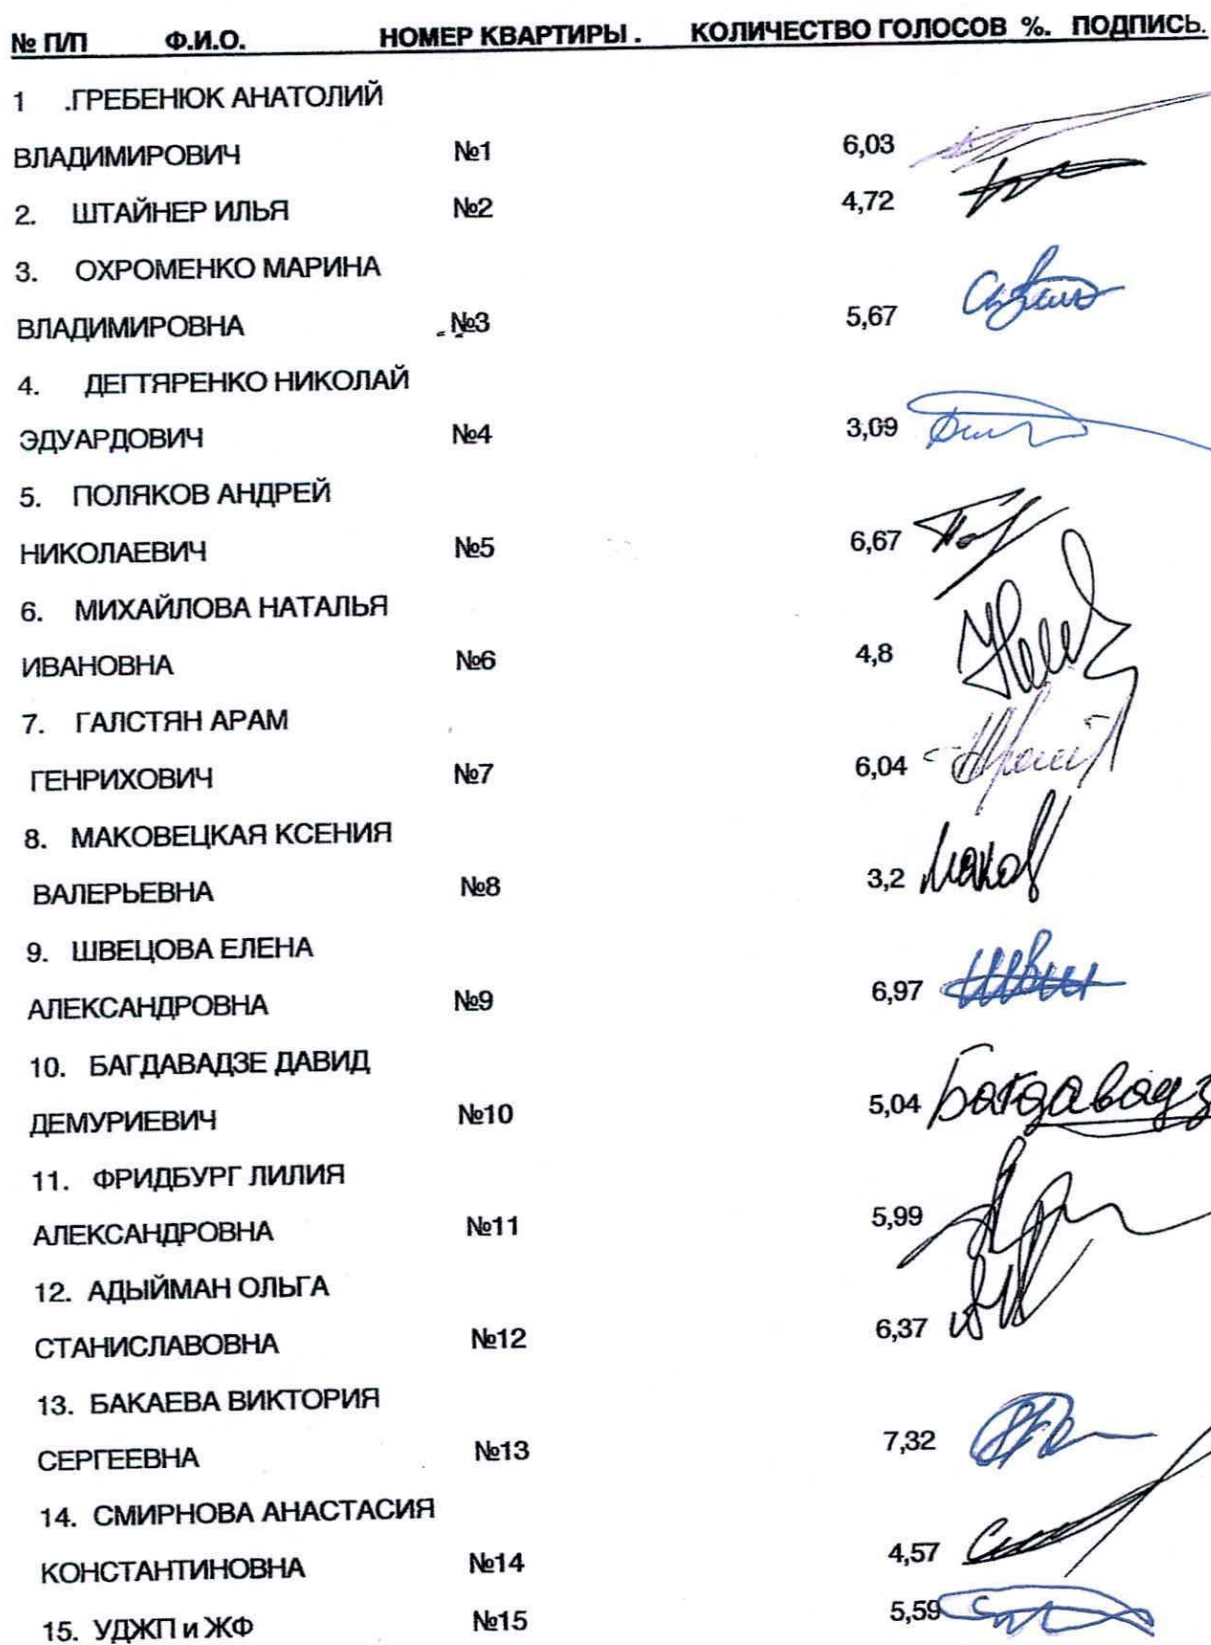 № П/П Ф.И.О. НОМЕР КВАРТИРЫ . КОЛИЧЕСТВО ГОЛОСОВ %. ПОДПИСЬ.
1 .ГРЕБЕНЮК АНАТОЛИЙ
ВЛАДИМИРОВИЧ №1 6,03
2. ШТАЙНЕР ИЛЬЯ №2 4,72
3. ОХРОМЕНКО МАРИНА
ВЛАДИМИРОВНА №3 5,67
4. ДЕГТЯРЕНКО НИКОЛАЙ
ЭДУАРДОВИЧ №4 3,09
5. ПОЛЯКОВ АНДРЕЙ
НИКОЛАЕВИЧ №5 6,67
6. МИХАЙЛОВА НАТАЛЬЯ
ИВАНОВНА №6 4,8
7. ГАЛСТЯН АРАМ
ГЕНРИХОВИЧ №7 6,04
8. МАКОВЕЦКАЯ КСЕНИЯ
ВАЛЕРЬЕВНА №8 3,2 Маков
9. ШВЕЦОВА ЕЛЕНА
АЛЕКСАНДРОВНА №9 6,97
10. БАГДАВАДЗЕ ДАВИД
ДЕМУРИЕВИЧ №10 5,04 Багдавадз
11. ФРИДБУРГ ЛИЛИЯ
АЛЕКСАНДРОВНА №11 5,99
12. АДЫЙМАН ОЛЬГА
СТАНИСЛАВОВНА №12 6,37
13. БАКАЕВА ВИКТОРИЯ
СЕРГЕЕВНА №13 7,32
14. СМИРНОВА АНАСТАСИЯ
КОНСТАНТИНОВНА №14 4,57
15. УДЖП и ЖФ №15 5,59